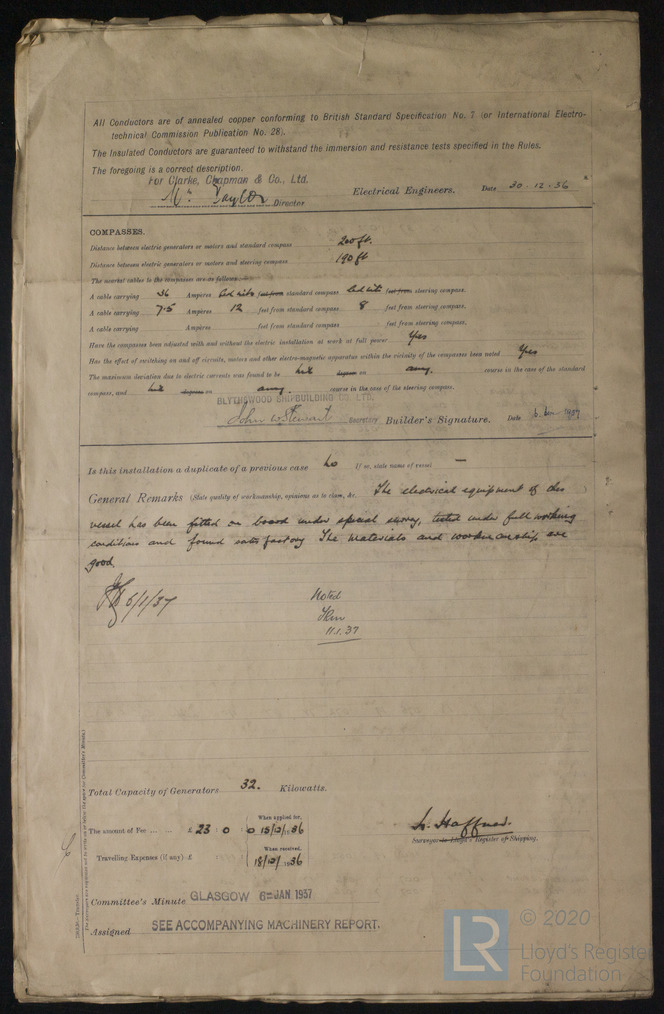 All Conductors are of annealed copper conforming to British Standard Specification No. 7 (or International Electro-
technical Commission Publication No. 28).
The Insulated Conductors are guaranteed to withstand the immersion and resistance tests specified in the Rules.
The foregoing is a correct description.
For Clarke, Chapman & Co., Ltd.
Taylor Director Electrical Engineers. Date 30.12.36
COMPASSES.
Distance between electric generators or motors and standard compass 200 ft.
Distance between electric generators or motors and steering compass 190 ft
The nearest cables to the compasses are as follows:—
A cable carrying .36 Amperes led into feet from standard compass led into feet from steering compass.
A cable carrying 7.5 Amperes 12 feet from standard compass 8 feet from steering compass.
A cable carrying Amperes feet from standard compass feet from steering compass.
Have the compasses been adjusted with and without the electric installation at work at full power Yes
Has the effect of switching on and off circuits, motors and other electro-magnetic apparatus within the vicinity of the compasses been noted Yes
The maximum deviation due to electric currents was found to be nil degrees on any course in the case of the standard
compass, and nil degrees on any course in the case of the steering compass.
BLYTHSWOOD SHIPBUILDING CO. LTD.
John W Stewart Secretary Builder's Signature. Date 6 Jan 1937
Is this installation a duplicate of a previous case no If so, state name of vessel —
General Remarks (State quality of workmanship, opinions as to class, &c. The electrical equipment of this
vessel has been fitted on board under special survey, tested under full working
conditions and found satisfactory The materials and workmanship are
good
6/1/37
Noted
11.1.37
Total Capacity of Generators 32. Kilowatts.
The amount of Fee ... £ 23 : 0 : 0 When applied for, 15/12/1936
Travelling Expenses (if any) £ When received, 18/12/1936
Surveyor to Lloyd's Register of Shipping.
Committee's Minute GLASGOW 6-JAN 1937
Assigned SEE ACCOMPANYING MACHINERY REPORT.
LR © 2020
Lloyd's Register
Foundation